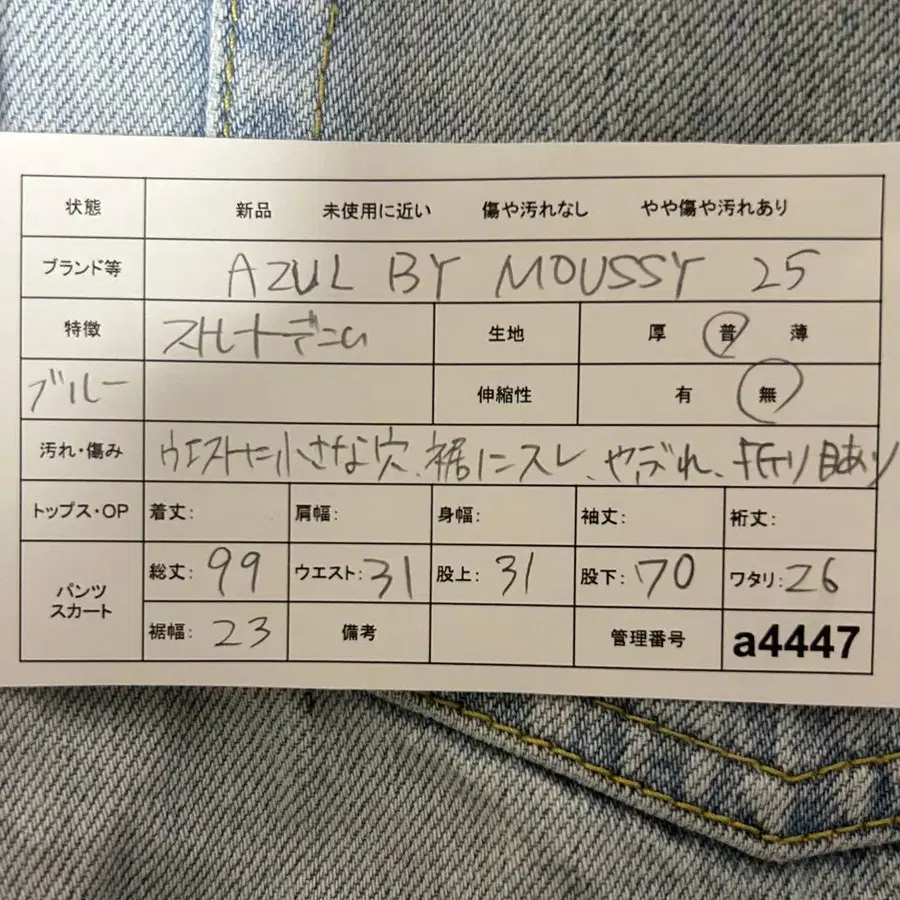 状態 新品 未使用に近い 傷や汚れなし やや傷や汚れあり
ブランド等 AZUL BY MOUSSY 25
特徴 ストレートデニム 生地 厚 普 薄
ブルー 伸縮性 有 無
汚れ・傷み ウエストに小さな穴、裾にスレ、やぶれ、折り目あり
トップス・OP 着丈: 肩幅: 身幅: 袖丈: 裄丈:
パンツ スカート 総丈: 99 ウエスト: 31 股上: 31 股下: 70 ワタリ: 26
裾幅: 23 備考 管理番号 a4447